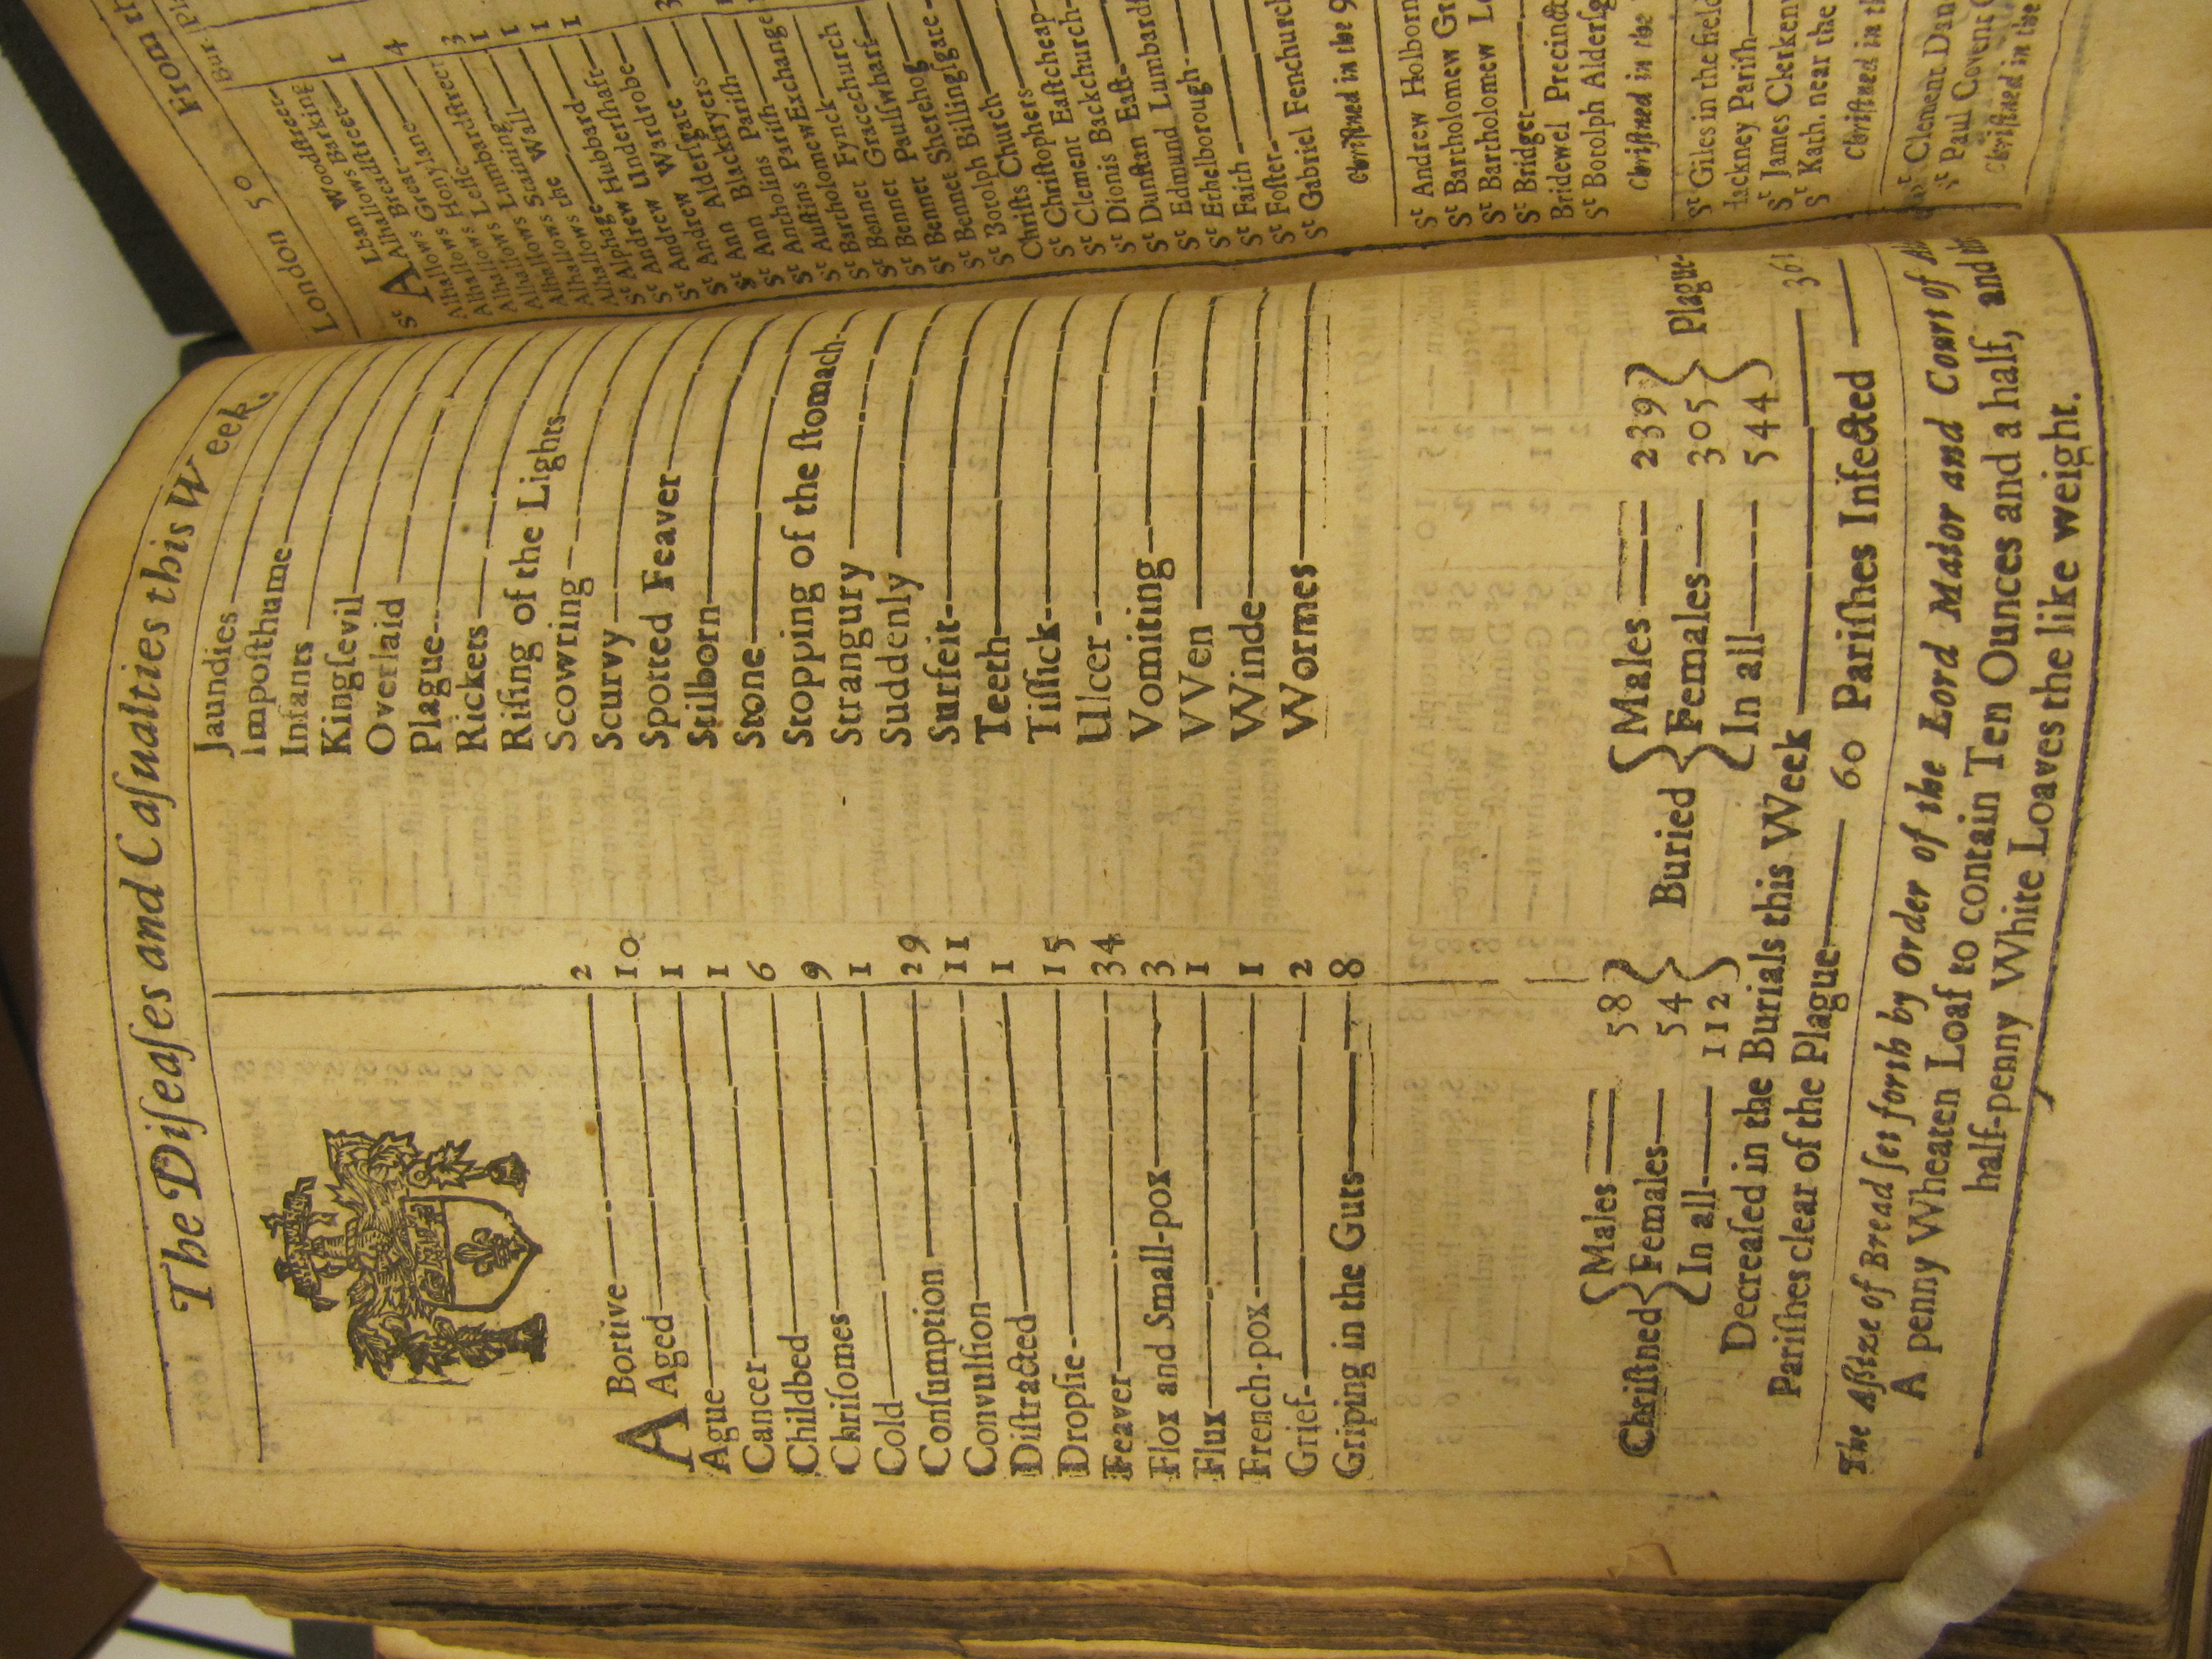 The Diſeaſes and Caſualties this Week.
ABortive 2
Aged 10
Ague 1
Cancer 1
Childbed 6
Chriſomes 9
Cold 1
Conſumption 29
Convulſion 11
Diſtracted 1
Dropſie 15
Feaver 34
Flox and Small-pox 3
Flux 1
French-pox 1
Grief 2
Griping in the Guts 8
Jaundies
Impoſthume
Infants
Kingſevil
Overlaid
Plague
Rickets
Riſing of the Lights
Scowring
Scurvy
Spotted Feaver
Stilborn
Stone
Stopping of the ſtomach
Strangury
Suddenly
Surfeit
Teeth
Tiſſick
Ulcer
Vomiting
VVen
Winde
Wormes
Chriſtned { Males 58 Females 54 In all 112 }
Buried { Males 239 Females 305 In all 544 } Plague
Decreaſed in the Burials this Week 361
Pariſhes clear of the Plague 60 Pariſhes Infected
The Aſsize of Bread ſet forth by Order of the Lord Maior and Court of
A penny Wheaten Loaf to contain Ten Ounces and a half, and
half-penny White Loaves the like weight.
London 50 From
Bur. Pl
St ALban Woodſtreet
Alhallows Barking 1
Alhallows Breadſtreet
Alhallows Great 4
Alhallows Honylane
Alhallows Leſſe 3
Alhallows Lumbardſtreet 1
Alhallows Staining 1
Alhallows the Wall 1
Alphage 1
St Andrew Hubbard
St Andrew Underſhaft
St Andrew Wardrobe
St Ann Alderſgate 3
St Ann Blackfryers
St Antholins Pariſh
St Auſtins Pariſh
St Bartholomew Exchange
St Bennet Fynck
St Bennet Gracechurch
St Bennet Paulſwharf
St Bennet Sherehog
St Botolph Billingſgate
Chriſts Church
St Chriſtophers
St Clement Eaſtcheap
St Dionis Backchurch
St Dunſtan Eaſt
St Edmund Lumbard
St Ethelborough
St Faith
St Foſter
St Gabriel Fenchurch
Chriſtned in the 9
St Andrew Holborn
St Bartholomew Gr
St Bartholomew Le
St Bridget
Bridewel Precinct
St Botolph Alderſg
Chriſtned in the
St Giles in the field
Hackney Pariſh
St James Clerken
St Kath. near the
Chriſtned in th
St Clement Dan
St Paul Covent G
Chriſtned in the